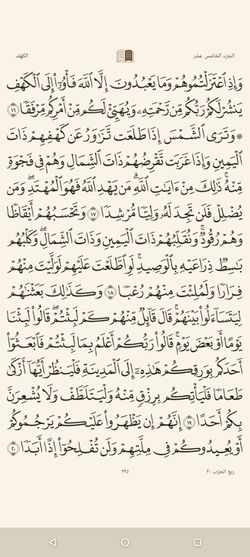 الجزء الخامس عشر الكهف
وَإِذِ ٱعْتَزَلْتُمُوهُمْ وَمَا يَعْبُدُونَ إِلَّا ٱللَّهَ فَأْوُۥٓا۟ إِلَى ٱلْكَهْفِ
يَنشُرْ لَكُمْ رَبُّكُم مِّن رَّحْمَتِهِۦ وَيُهَيِّئْ لَكُم مِّنْ أَمْرِكُم مِّرْفَقًا ١٦
۞ وَتَرَى ٱلشَّمْسَ إِذَا طَلَعَت تَّزَٰوَرُ عَن كَهْفِهِمْ ذَاتَ
ٱلْيَمِينِ وَإِذَا غَرَبَت تَّقْرِضُهُمْ ذَاتَ ٱلشِّمَالِ وَهُمْ فِى فَجْوَةٍ
مِّنْهُ ۚ ذَٰلِكَ مِنْ ءَايَٰتِ ٱللَّهِ ۗ مَن يَهْدِ ٱللَّهُ فَهُوَ ٱلْمُهْتَدِ ۖ وَمَن
يُضْلِلْ فَلَن تَجِدَ لَهُۥ وَلِيًّا مُّرْشِدًا ١٧ وَتَحْسَبُهُمْ أَيْقَاظًا
وَهُمْ رُقُودٌ ۚ وَنُقَلِّبُهُمْ ذَاتَ ٱلْيَمِينِ وَذَاتَ ٱلشِّمَالِ ۖ وَكَلْبُهُم
بَٰسِطٌ ذِرَاعَيْهِ بِٱلْوَصِيدِ ۚ لَوِ ٱطَّلَعْتَ عَلَيْهِمْ لَوَلَّيْتَ مِنْهُمْ
فِرَارًا وَلَمُلِئْتَ مِنْهُمْ رُعْبًا ١٨ وَكَذَٰلِكَ بَعَثْنَٰهُمْ
لِيَتَسَآءَلُوا۟ بَيْنَهُمْ ۚ قَالَ قَآئِلٌ مِّنْهُمْ كَمْ لَبِثْتُمْ ۖ قَالُوا۟ لَبِثْنَا
يَوْمًا أَوْ بَعْضَ يَوْمٍ ۚ قَالُوا۟ رَبُّكُمْ أَعْلَمُ بِمَا لَبِثْتُمْ فَٱبْعَثُوٓا۟
أَحَدَكُم بِوَرِقِكُمْ هَٰذِهِۦٓ إِلَى ٱلْمَدِينَةِ فَلْيَنظُرْ أَيُّهَآ أَزْكَىٰ
طَعَامًا فَلْيَأْتِكُم بِرِزْقٍ مِّنْهُ وَلْيَتَلَطَّفْ وَلَا يُشْعِرَنَّ
بِكُمْ أَحَدًا ١٩ إِنَّهُمْ إِن يَظْهَرُوا۟ عَلَيْكُمْ يَرْجُمُوكُمْ
أَوْ يُعِيدُوكُمْ فِى مِلَّتِهِمْ وَلَن تُفْلِحُوٓا۟ إِذًا أَبَدًا ٢٠
ربع الحزب ٣٠ ٢٩٥